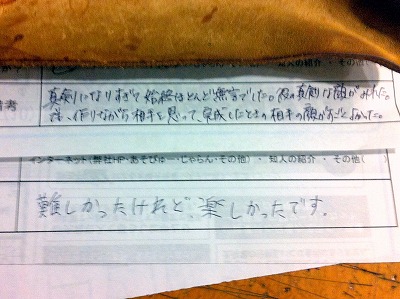 知人の紹介 ・ その他(
考
真剣になりすぎて始終ほとんど無言でした。彼の真剣な顔がみれた。
作りながら相手を思って、完成したときの相手の顔がすごくよかった。
インターネット(弊社HP・あそびゅー・じゃらん・その他) ・ 知人の紹介 ・ その他(
難しかったけれど、楽しかったです。